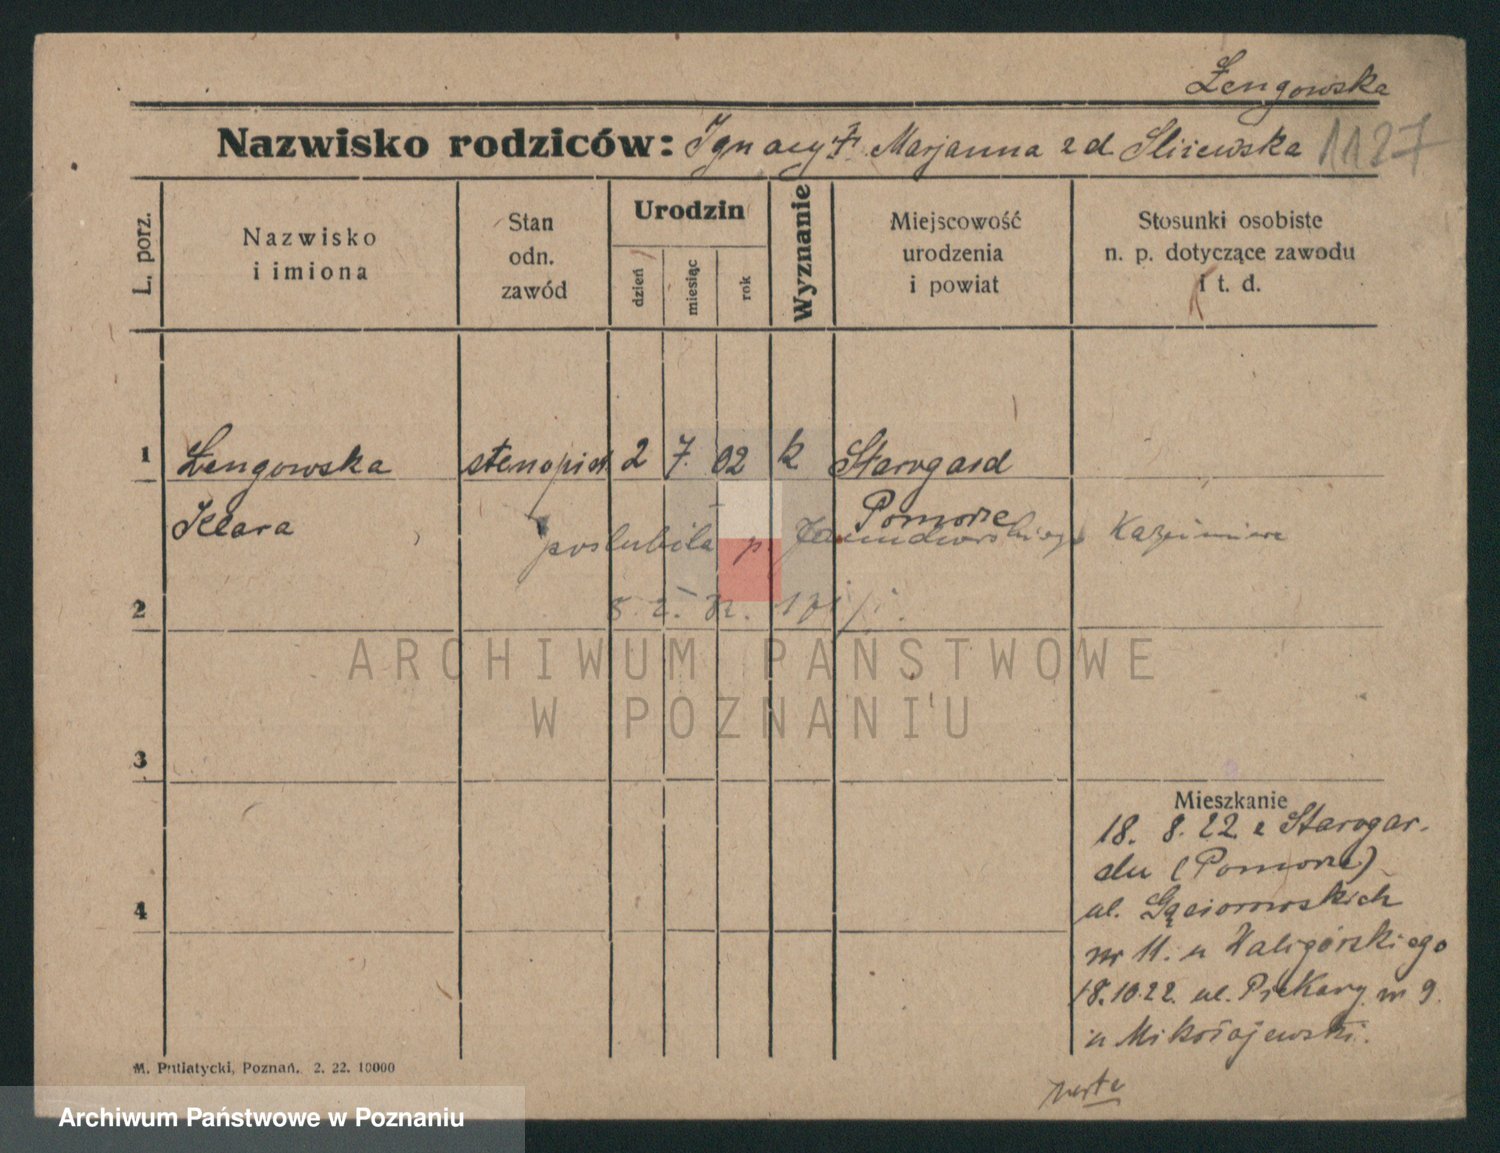 Żengowska
Nazwisko rodziców: Ignacy † Marjanna z d. Śliżewska 1127
L. porz.
Nazwisko
i imiona
Stan
odn.
zawód
Urodzin
dzień
miesiąc
rok
Wyznanie
Miejscowość
urodzenia
i powiat
Stosunki osobiste
n. p. dotyczące zawodu
i t. d.
1 Żengowska stenopist. 2 7. 02 k Starogard
Klara Pomorze
poślubiła p. Kazimierz
2
ARCHIWUM PAŃSTWOWE
W POZNANIU
3
Mieszkanie
18. 8. 22 z Starogar-
du (Pomorze)
4
ul. Gąsiorowskich
nr 11. u Haligórskiego
18.10.22. ul. Piekary nr 9.
u Mikołajewski.
M. Putiatycki, Poznań. 2. 22. 10000
verte
Archiwum Państwowe w Poznaniu